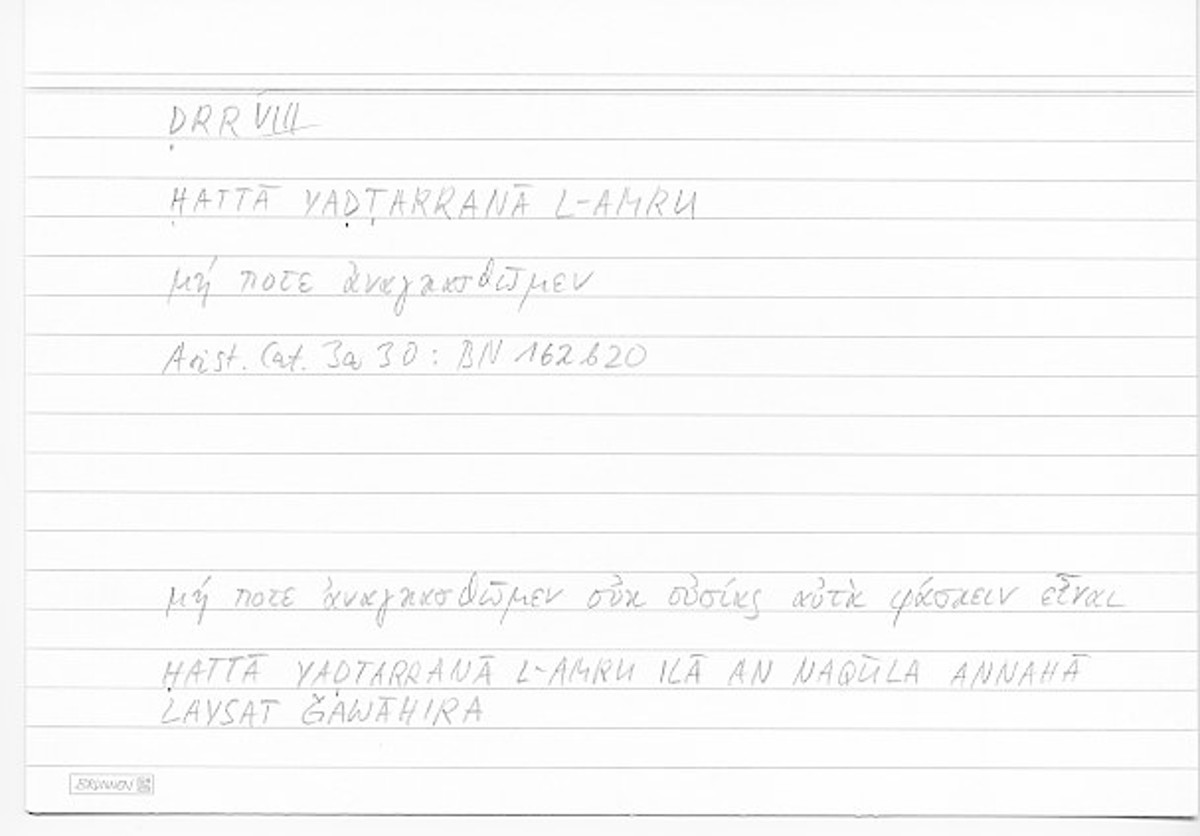 ḌRR VIII
ḤATTĀ YAḌṬARRANĀ L-AMRU
μή ποτε ἀναγκασθῶμεν
Arist. Cat. 3a 30 : BN 162b20
μή ποτε ἀναγκασθῶμεν οὐκ οὐσίας αὐτὰ φάσκειν εἶναι
ḤATTĀ YAḌTARRANĀ L-AMRU ILĀ AN NAQŪLA ANNAHĀ
LAYSAT ǦAWĀHIRA
BRUNNEN